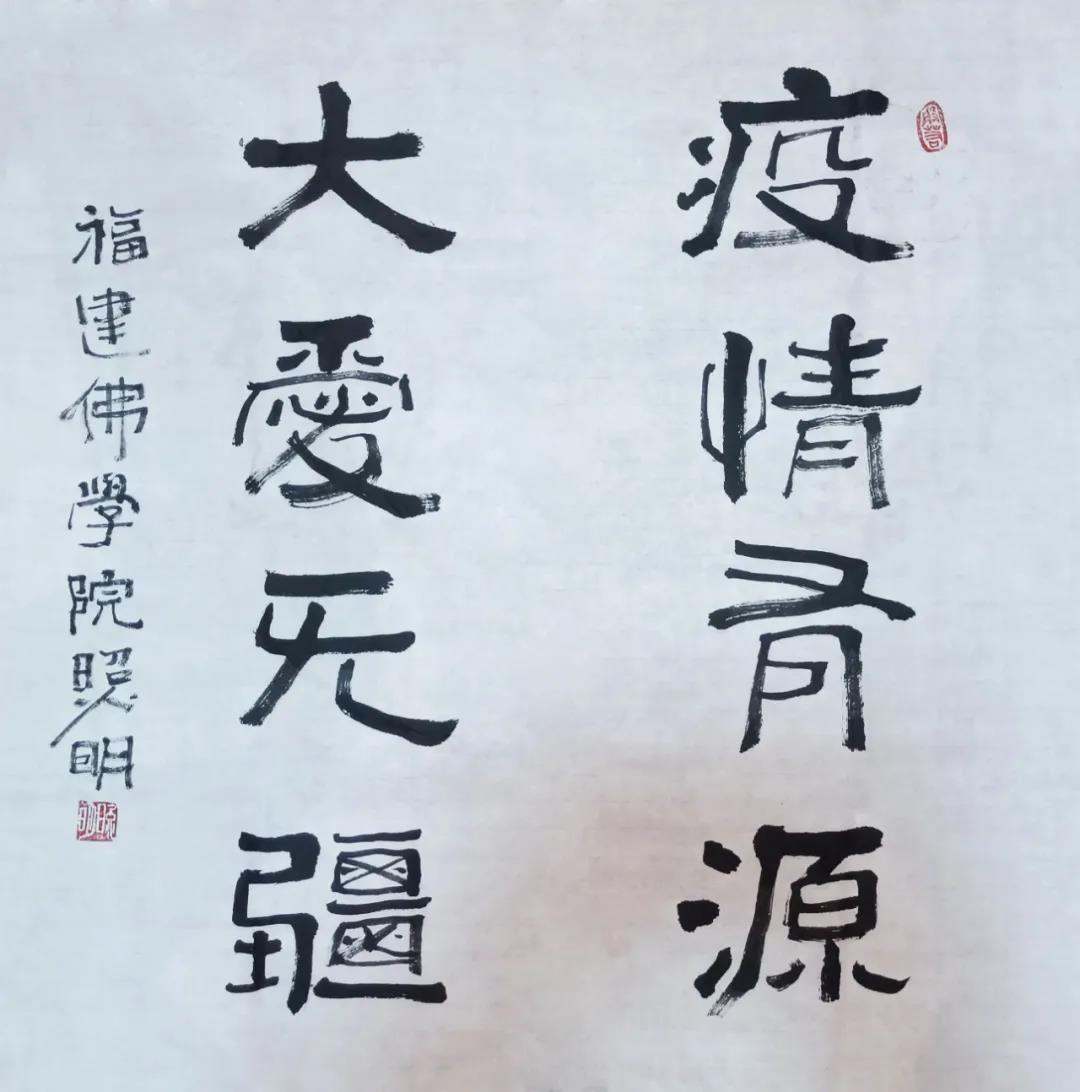 疫情有源
大愛无疆
福建佛學院照明